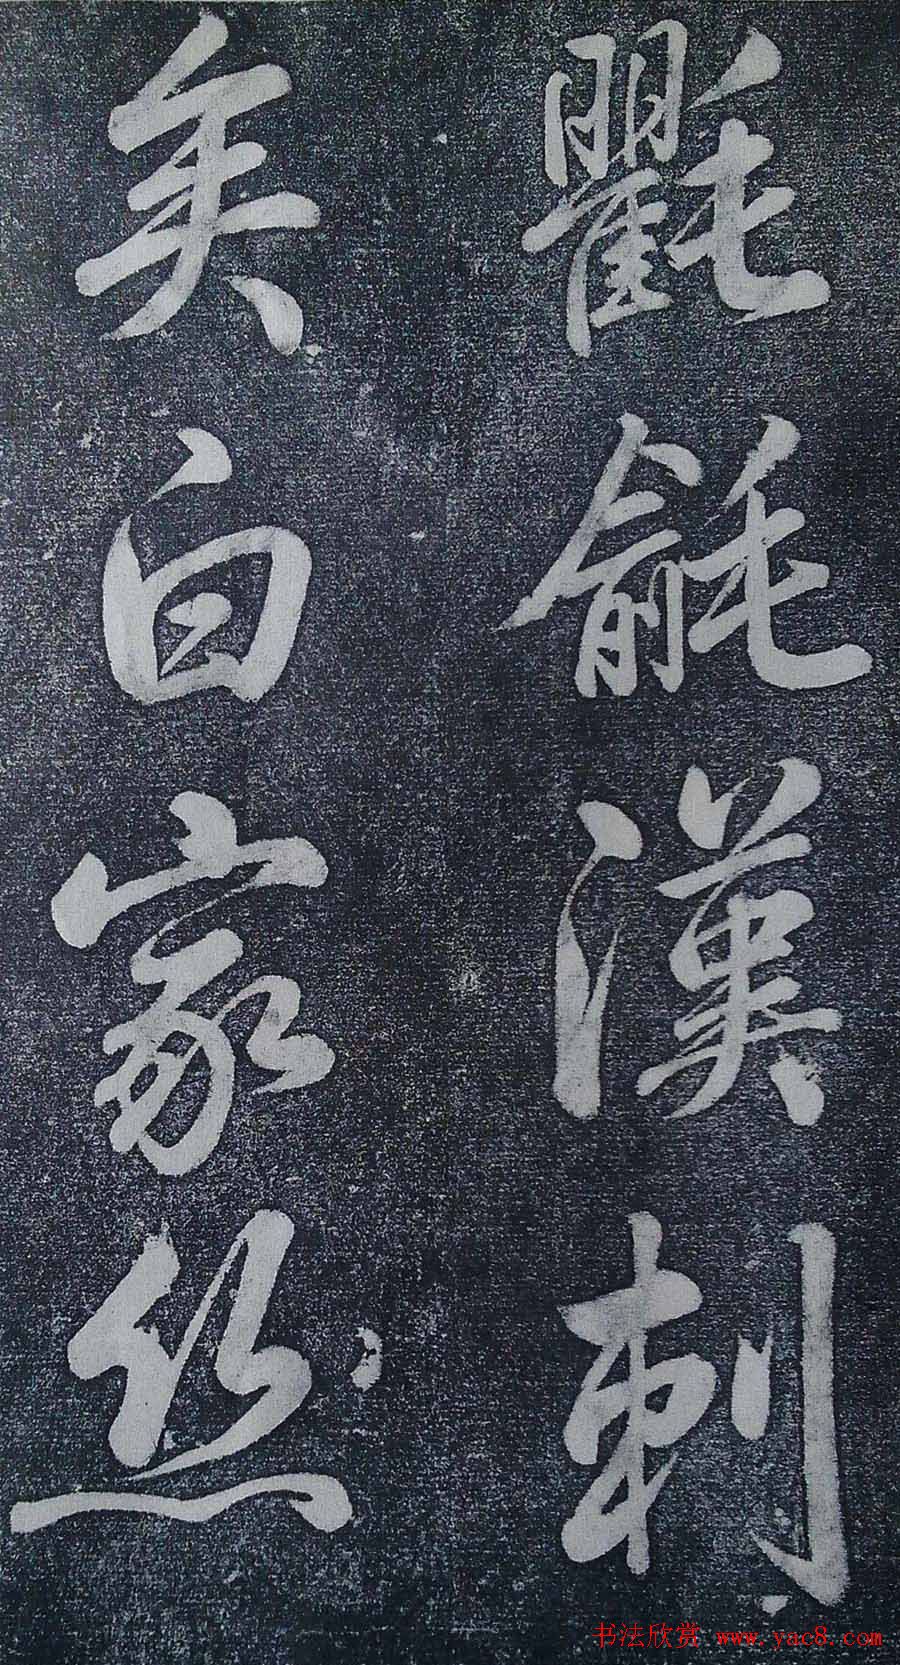 氍毹漢刺
矣白家丝
书法欣赏 www.yac8.com